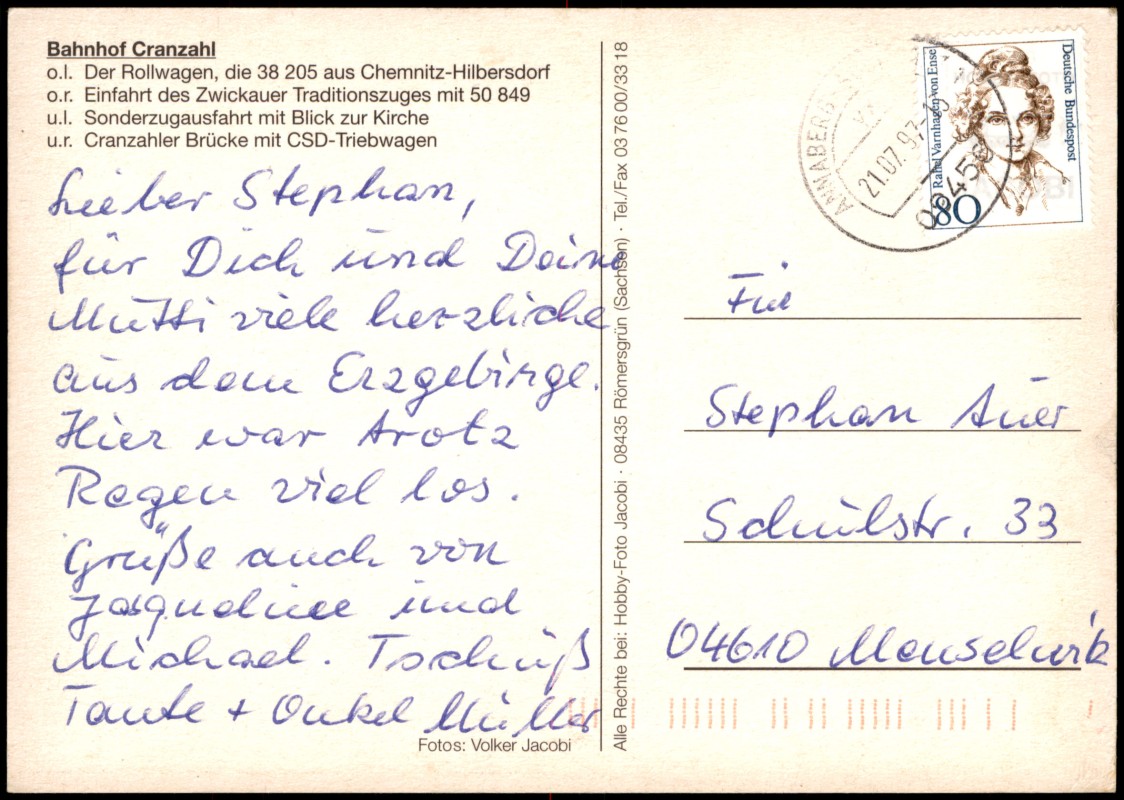 Bahnhof Cranzahl
o.l. Der Rollwagen, die 38 205 aus Chemnitz-Hilbersdorf
o.r. Einfahrt des Zwickauer Traditionszuges mit 50 849
u.l. Sonderzugausfahrt mit Blick zur Kirche
u.r. Cranzahler Brücke mit CSD-Triebwagen
Lieber Stephan,
für Dich und Deine
Mutti viele herzliche
aus dem Erzgebirge.
Hier war trotz
Regen viel los.
Grüße auch von
Jaqueline und
Michael. Tschüß
Tante + Onkel Müller
Fotos: Volker Jacobi
Alle Rechte bei: Hobby-Foto Jacobi · 08435 Römersgrün (Sachsen) · Tel./Fax 03 76 00/33 18
ANNABERG
21.07.97
09456
Rahel Varnhagen von Ense
Deutsche Bundespost
80
Für
Stephan Auer
Schulstr. 33
04610 Meuselwitz